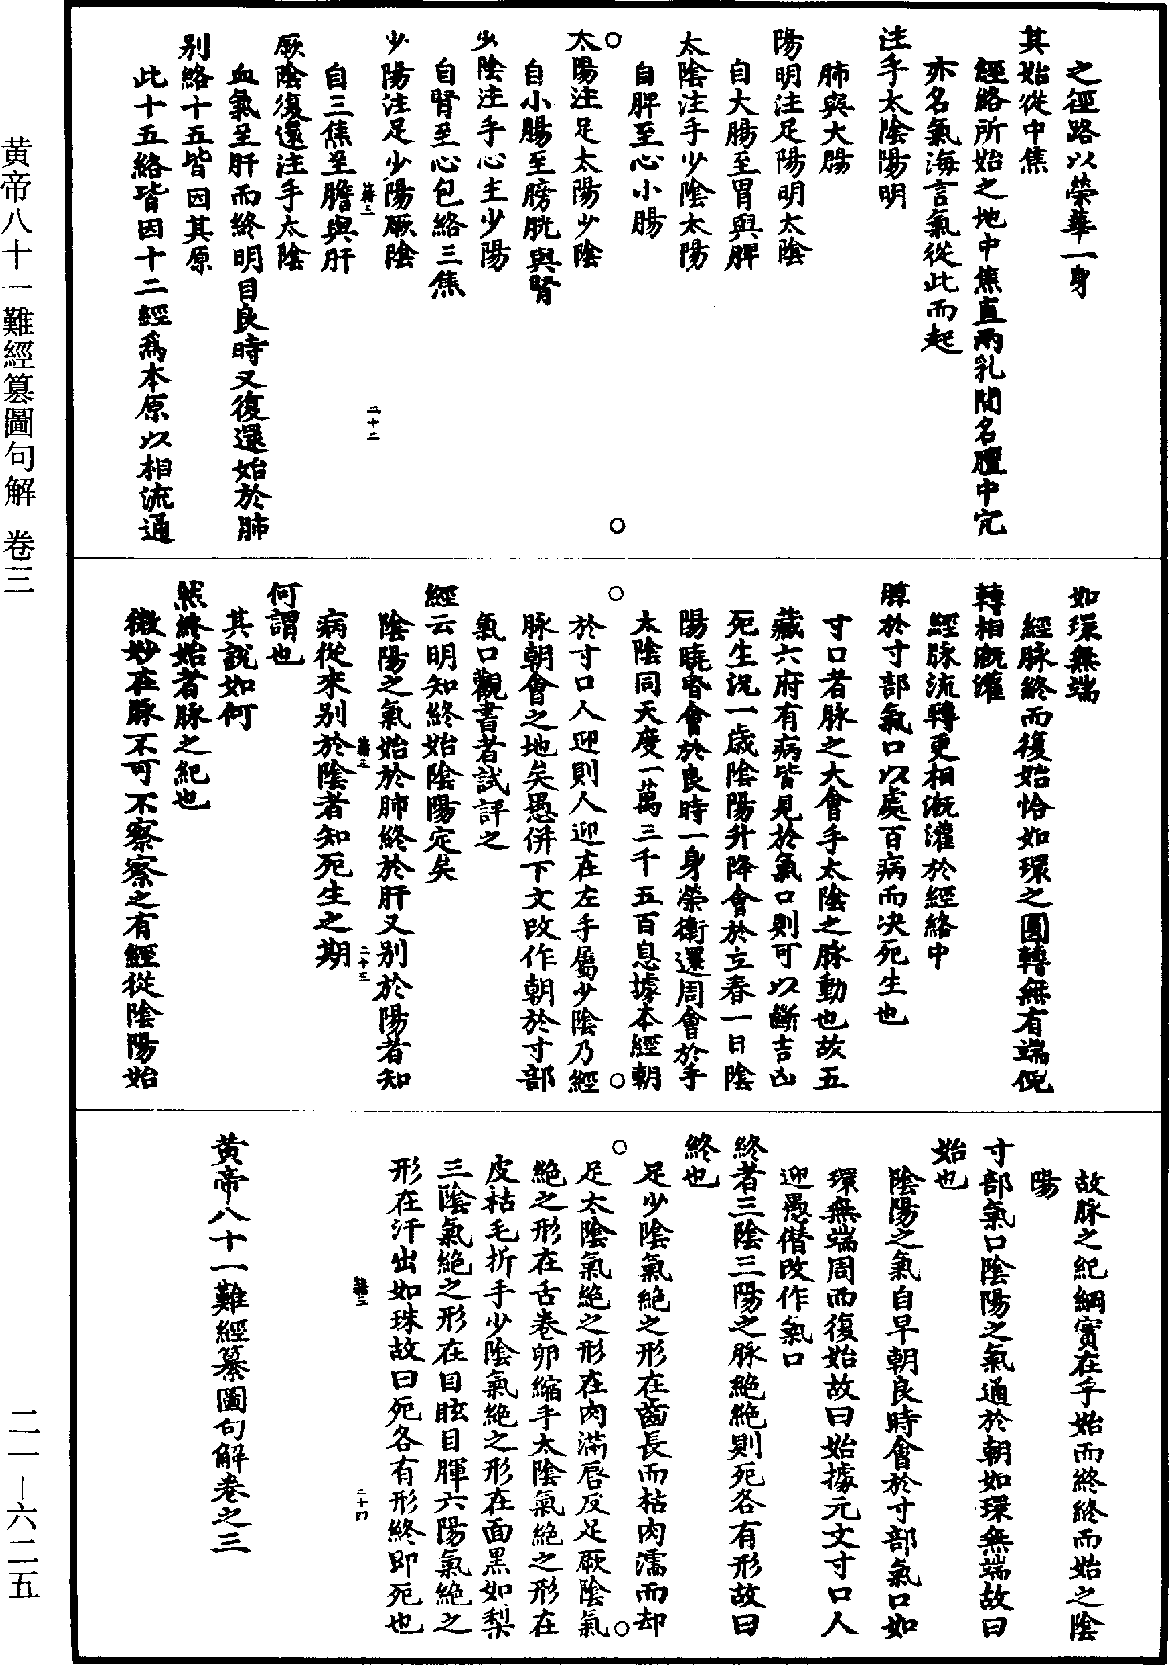 之徑路以榮華一身
其始從中焦
經絡所始之地中焦直兩乳間名膻中穴
亦名氣海言氣從此而起
注手太陰陽明
肺與大腸
陽明注足陽明太陰
自大腸至胃與脾
太陰注手少陰太陽
自脾至心小腸
太陽注足太陽少陰
自小腸至膀胱與腎
少陰注手心主少陽
自腎至心包絡三焦
少陽注足少陽厥陰
二十二
自三焦至膽與肝
厥陰復還注手太陰
血氣至肝而終明目良時又復還始於肺
別絡十五皆因其原
此十五絡皆因十二經為本原以相流通
如環無端
經脉終而復始恰如環之圓轉無有端倪
轉相溉灌
經脉流轉更相溉灌於經絡中
朝於寸部氣口以處百病而決死生也
寸口者脉之大會手太陰之脉動也故五
藏六府有病皆見於氣口則可以斷吉凶
死生況一歲陰陽升降會於立春一日陰
陽曉昏會於良時一身榮衛還周會於手
太陰同天度一萬三千五百息據本經朝
於寸口人迎則人迎在左手屬少陰乃經
脉朝會之地矣愚併下文改作朝於寸部
氣口觀書者試評之
經云明知終始陰陽定矣
陰陽之氣始於肺終於肝又別於陽者知
二十三
病從來別於陰者知死生之期
何謂也
其說如何
然終始者脉之紀也
微妙在脉不可不察察之有經從陰陽始
故脉之紀綱實在乎始而終終而始之陰
陽
寸部氣口陰陽之氣通於朝如環無端故曰
始也
陰陽之氣自早朝良時會於寸部氣口如
環無端周而復始故曰始據元文寸口人
迎愚僭改作氣口
終者三陰三陽之脉絕絕則死各有形故曰
終也
足少陰氣絕之形在齒長而枯肉濡而却
足太陰氣絕之形在肉滿唇反足厥陰氣
絕之形在舌卷卵縮手太陰氣絕之形在
皮枯毛折手少陰氣絕之形在面黑如梨
三陰氣絕之形在目眩目暉六陽氣絕之
形在汗出如珠故曰死各有形終即死也
二十四
黃帝八十一難經纂圖句解卷之三
黃帝八十一難經篡圖句解 卷三
二一—六二五